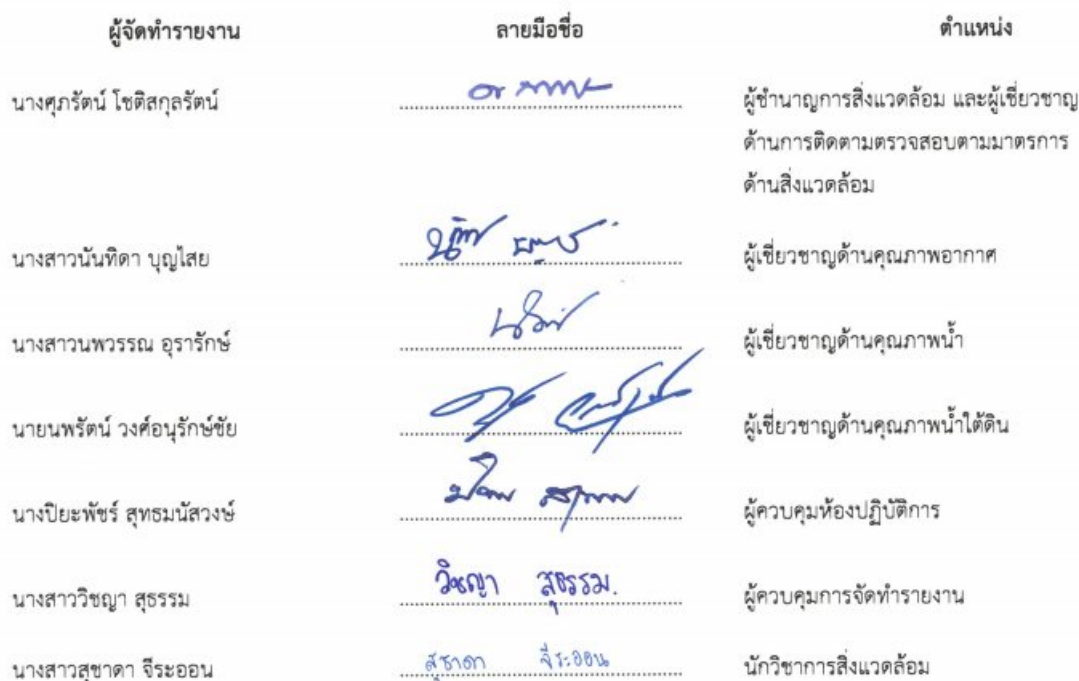 ผู้จัดทำรายงาน ลายมือชื่อ ตำแหน่ง
นางศุภรัตน์ โชติสกุลรัตน์ ผู้ชำนาญการสิ่งแวดล้อม และผู้เชี่ยวชาญ
ด้านการติดตามตรวจสอบตามมาตรการ
ด้านสิ่งแวดล้อม
นางสาวนันทิดา บุญไสย ผู้เชี่ยวชาญด้านคุณภาพอากาศ
นางสาวนพวรรณ อุรารักษ์ ผู้เชี่ยวชาญด้านคุณภาพน้ำ
นายนพรัตน์ วงศ์อนุรักษ์ชัย ผู้เชี่ยวชาญด้านคุณภาพน้ำใต้ดิน
นางปิยะพัชร์ สุทธมนัสวงษ์ ผู้ควบคุมห้องปฏิบัติการ
นางสาววิชญา สุธรรม วิชญา สุธรรม. ผู้ควบคุมการจัดทำรายงาน
นางสาวสุชาดา จีระออน สุชาดา จีระออน นักวิชาการสิ่งแวดล้อม